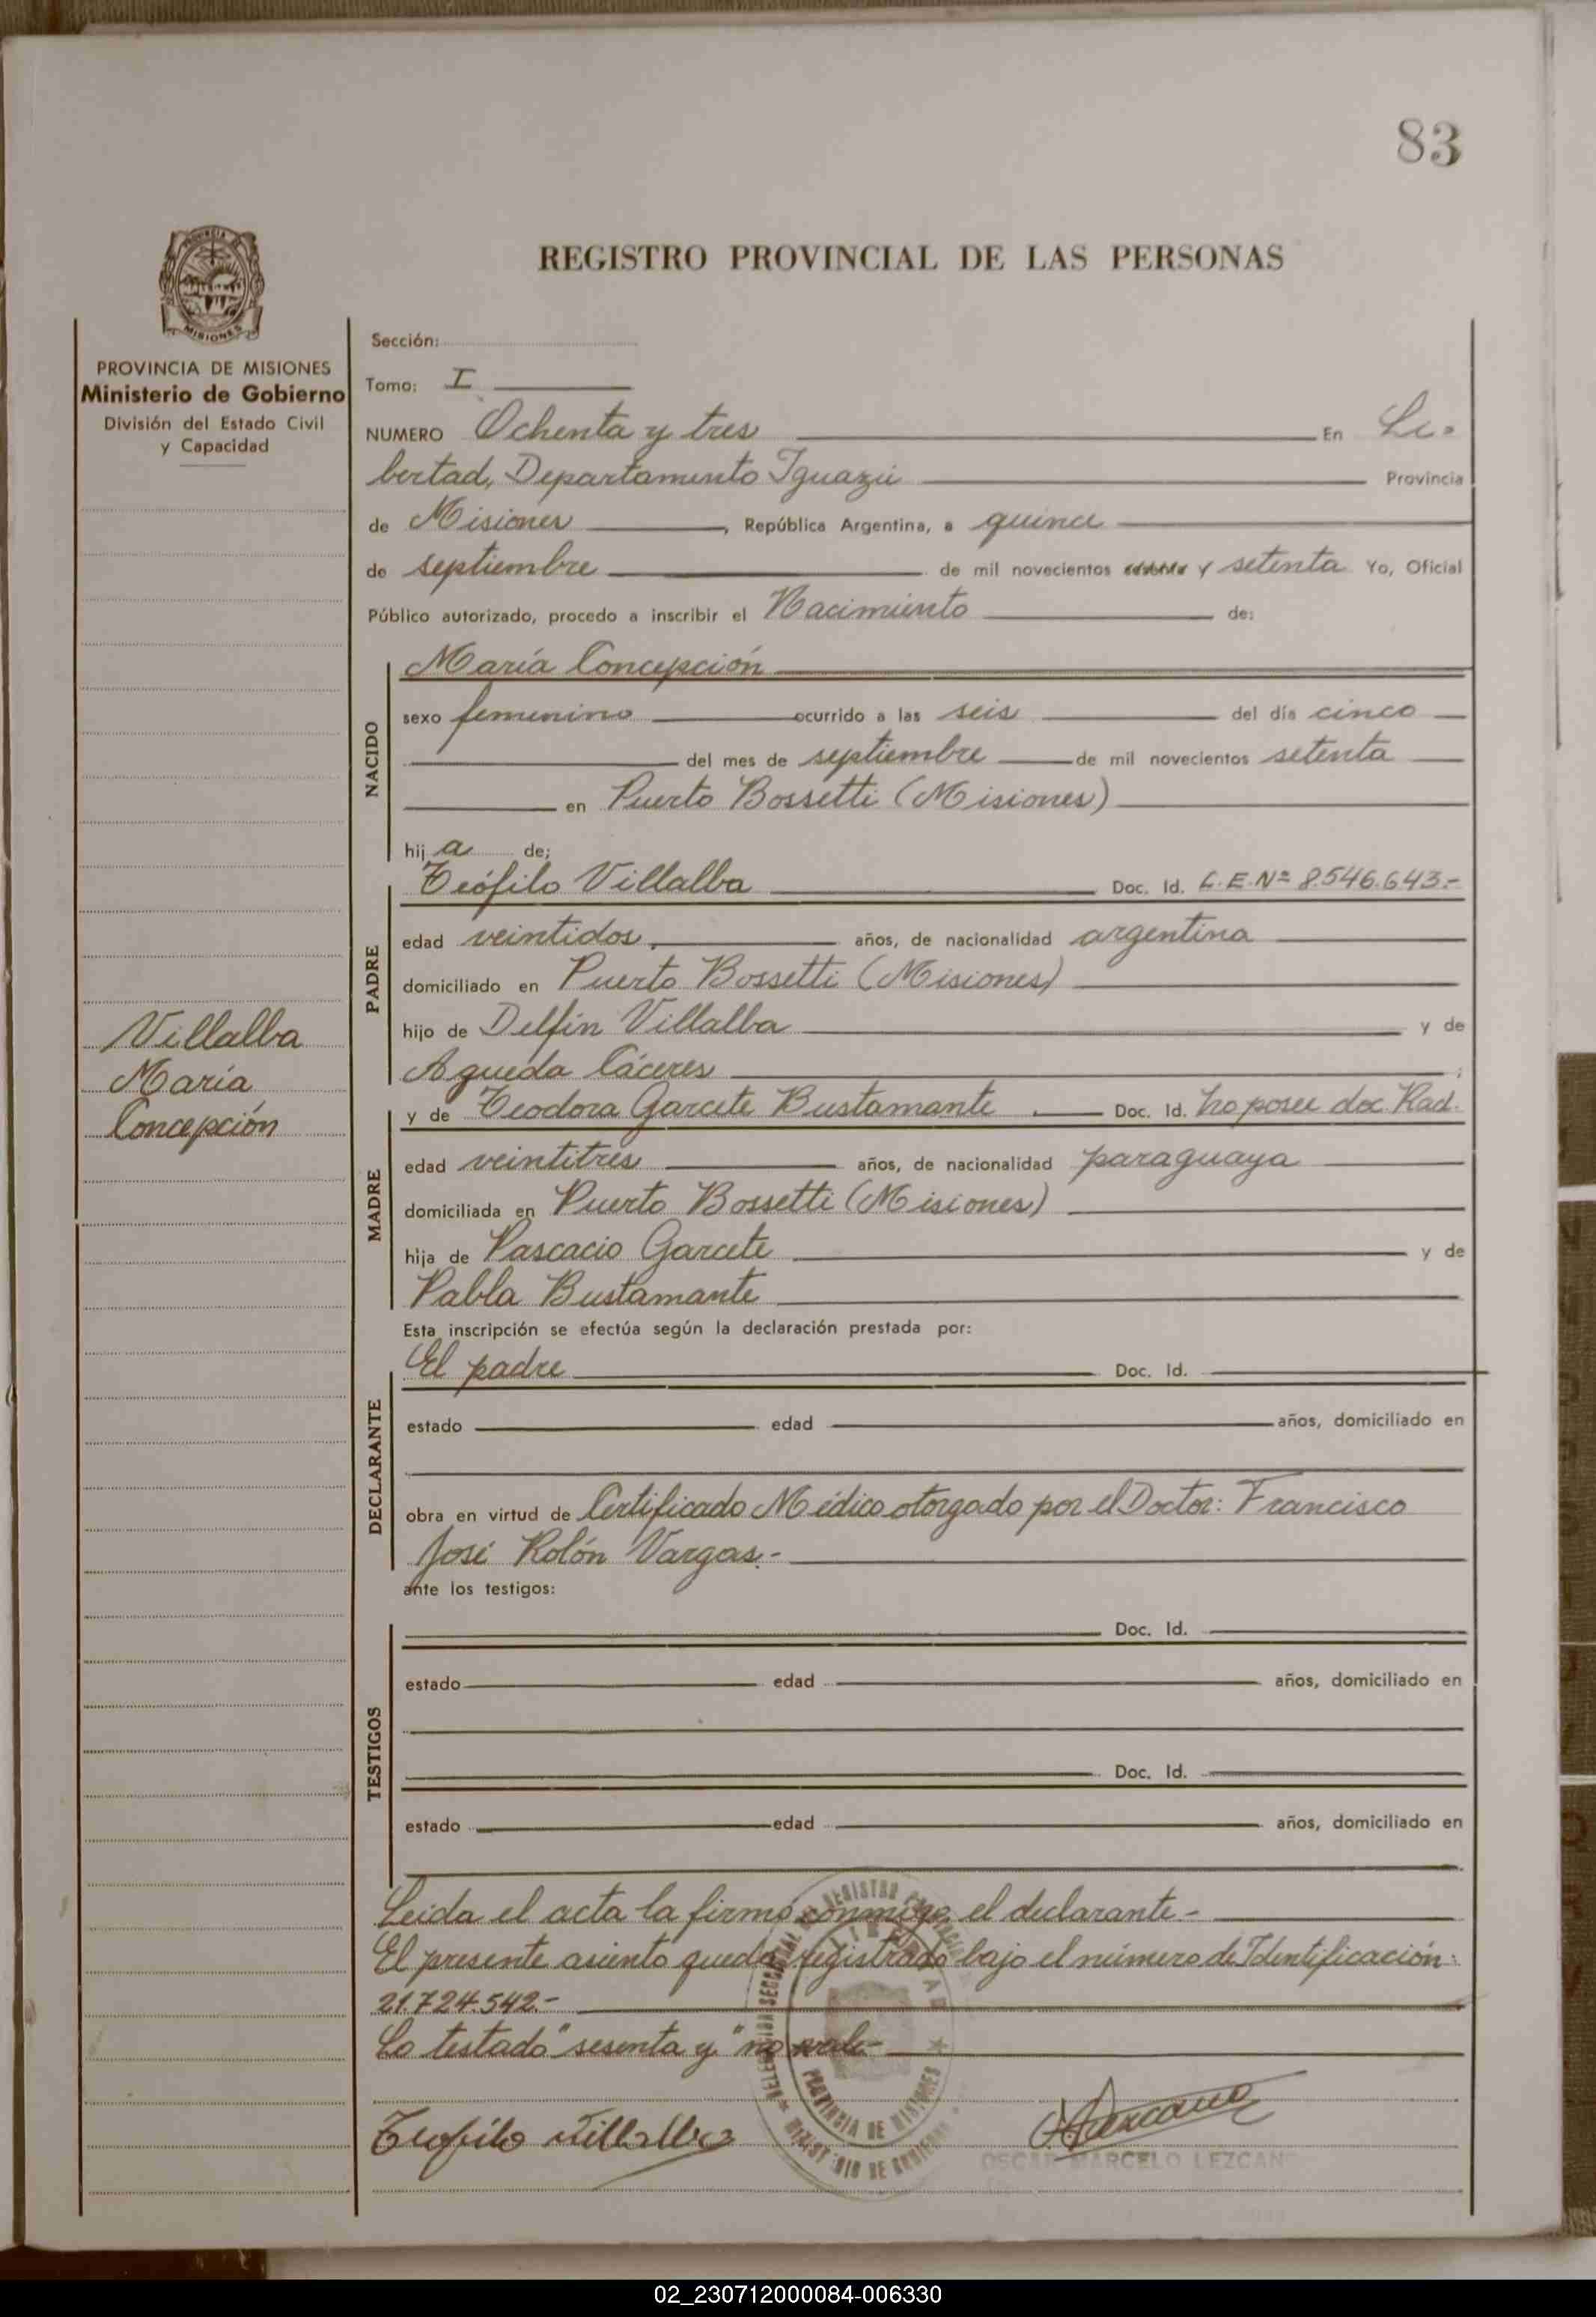 83
REGISTRO PROVINCIAL DE LAS PERSONAS
MISIONES
PROVINCIA DE MISIONES
Ministerio de Gobierno
División del Estado Civil
y Capacidad
Villalba
María
Concepción
Sección:
Tomo: I
NUMERO Ochenta y tres En Li-
bertad, Departamento Iguazú Provincia
de Misiones, República Argentina, a quince
de septiembre de mil novecientos sesenta y setenta Yo, Oficial
Público autorizado, procedo a inscribir el Nacimiento de:
NACIDO
María Concepción
sexo femenino ocurrido a las seis del día cinco
del mes de septiembre de mil novecientos setenta
en Puerto Bossetti (Misiones)
hija de;
PADRE
Teófilo Villalba Doc. Id. L.E.Nº 8.546.643.-
edad veintidos, años, de nacionalidad argentina
domiciliado en Puerto Bossetti (Misiones)
hijo de Delfín Villalba y de
Agueda Cáceres ;
MADRE
y de Teodora Garcete Bustamante Doc. Id. no posee doc. Rad.
edad veintitres años, de nacionalidad paraguaya
domiciliada en Puerto Bossetti (Misiones)
hija de Pascacio Garcete y de
Pabla Bustamante
Esta inscripción se efectúa según la declaración prestada por:
DECLARANTE
El padre Doc. Id.
estado edad años, domiciliado en
obra en virtud de Certificado Médico otorgado por el Doctor: Francisco
José Rolón Vargas.-
ante los testigos:
TESTIGOS
Doc. Id.
estado edad años, domiciliado en
Doc. Id.
estado edad años, domiciliado en
Leida el acta la firmó conmigo, el declarante.-
El presente asiento queda registrado bajo el número de Identificación:
21.724.542.-
Lo testado "sesenta y" no vale.-
PROVINCIA DE MISIONES
Teofilo Villalba
OSCAR MARCELO LEZCANO
02_230712000084-006330